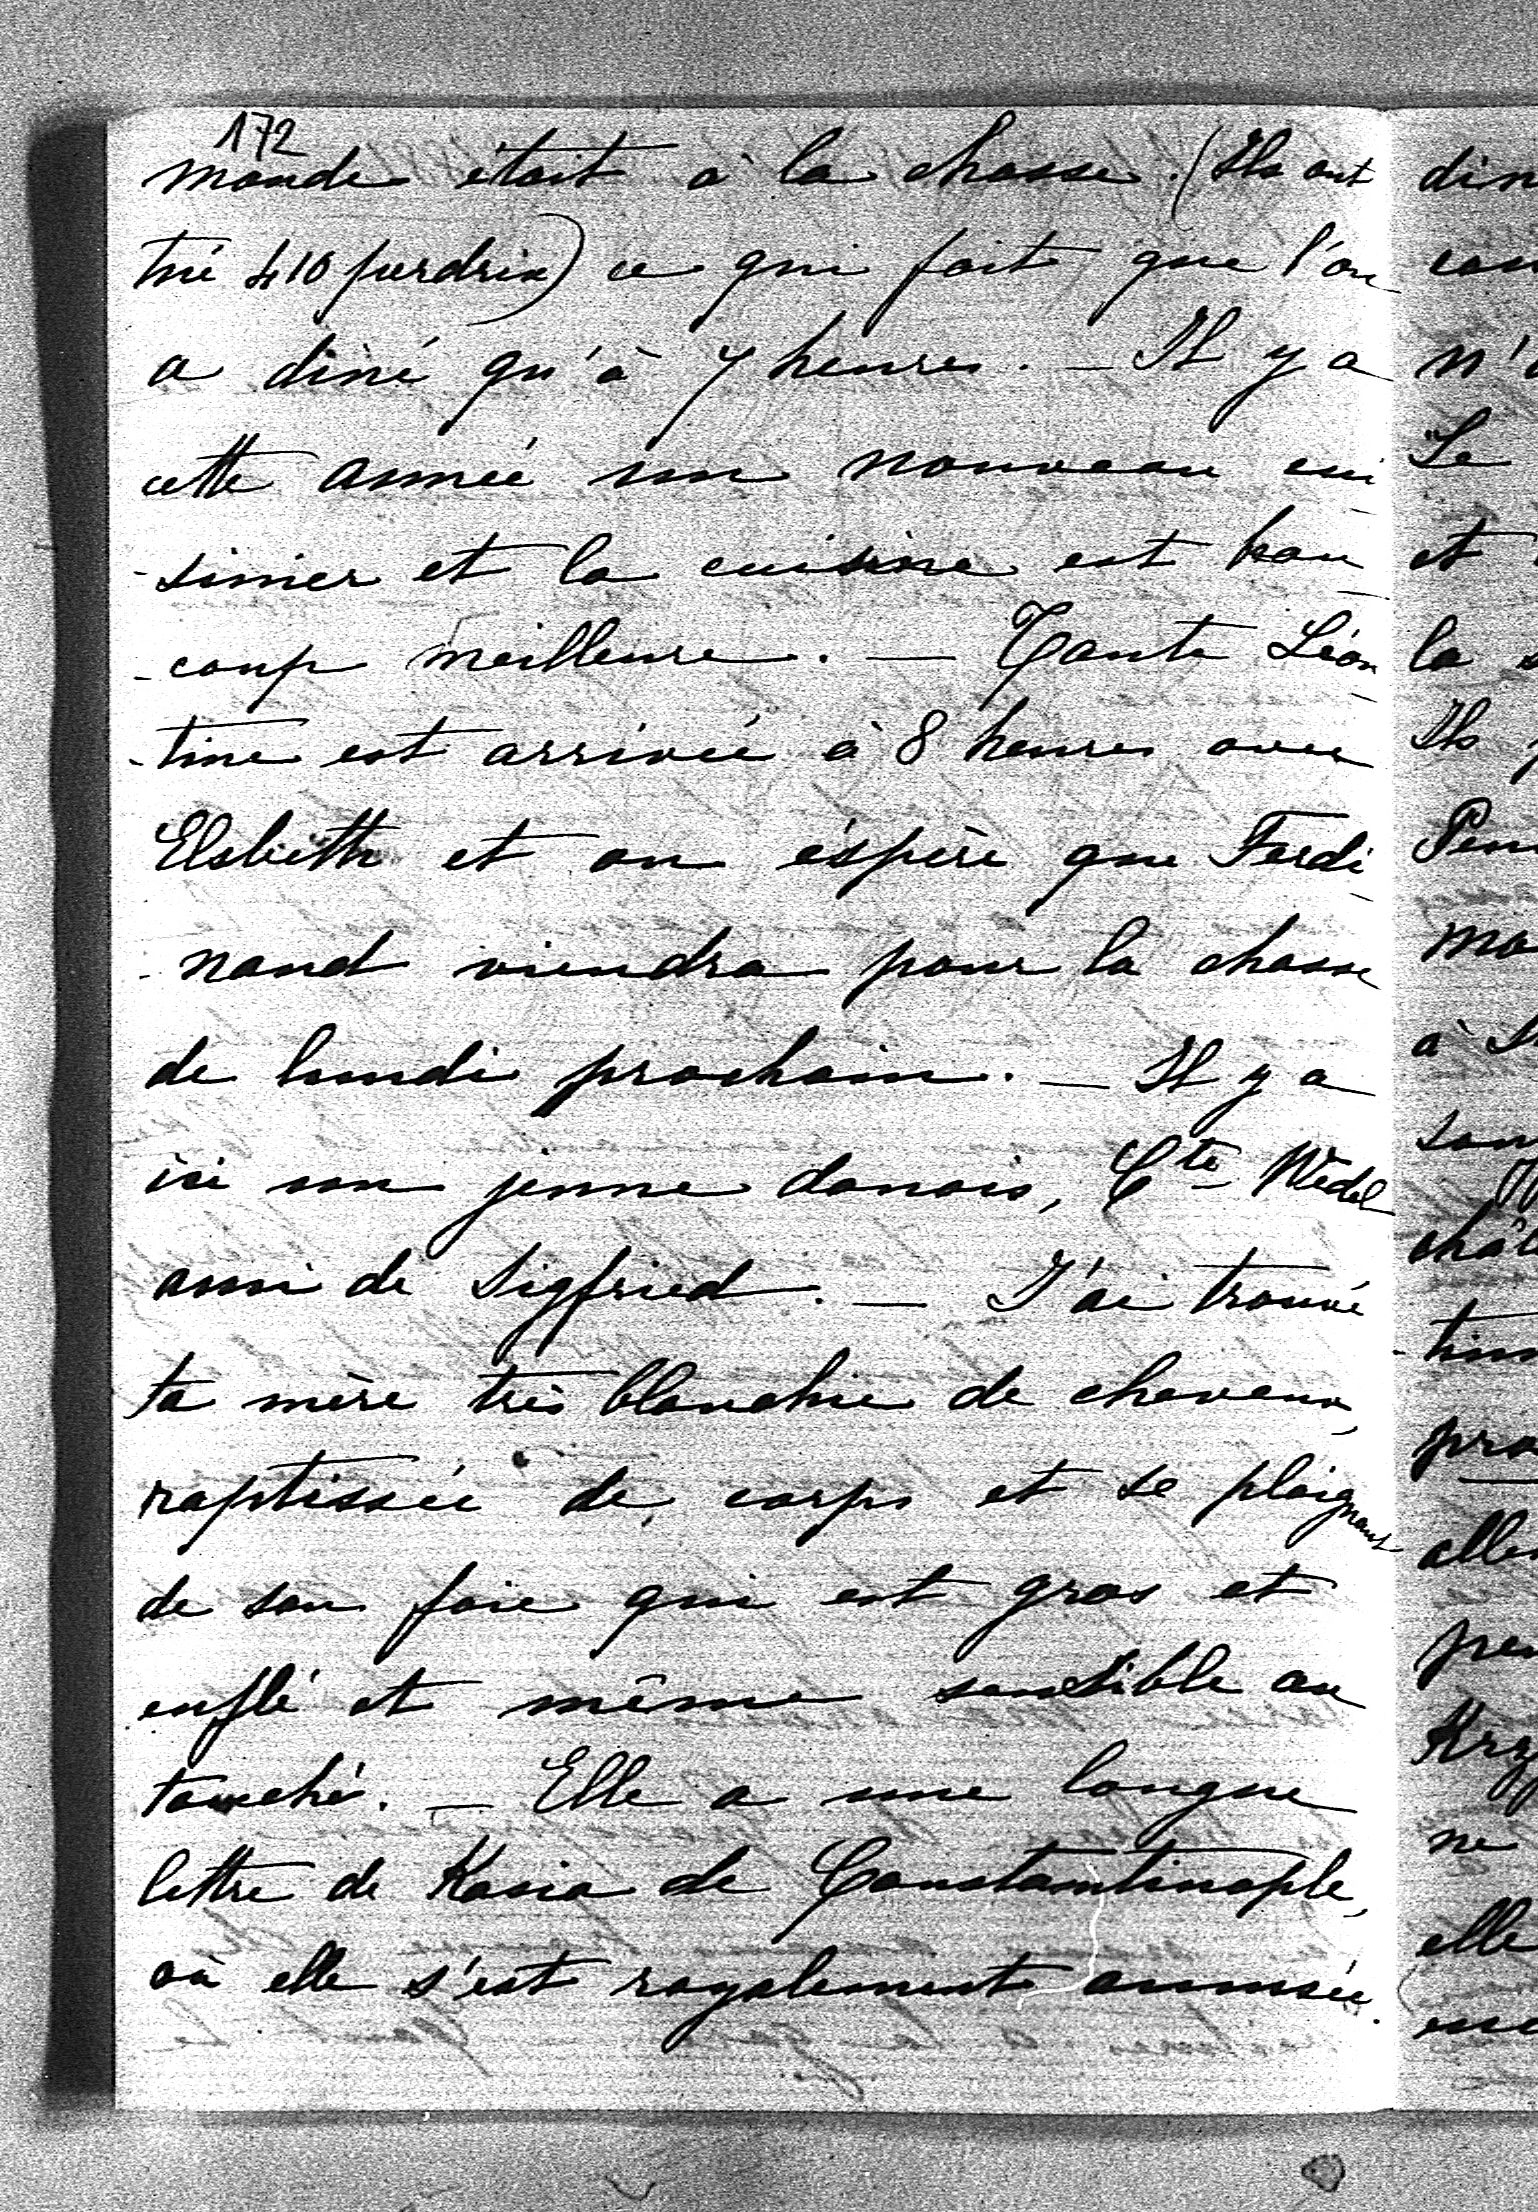 172
monde était à la chasse. (Ils ont
tué 410 perdrix) ce qui fait que l'on
a diné qu'à 7 heures. — Il y a
cette année un nouveau cui
-sinier et la cuisine est beau
-coup meilleure. — Tante Léon
-tine est arrivée à 8 heures avec
Elsbeth et on éspère que Ferdi
-nand viendra pour la chasse
de lundi prochain. — Il y a
ici un jeune danois, Cte Wedel
ami de Sigfried. — J'ai trouvé
ta mère très blanchie de cheveux,
raptissée de corps et se plaignant
de son foie qui est gros et
enflé et même sensible au
touché. — Elle a une longue
lettre de Kasia de Constantinople,
où elle s'est royalement amusée.
din
n'
Le
et
la
Ils
mo
à
chât
pro
elle